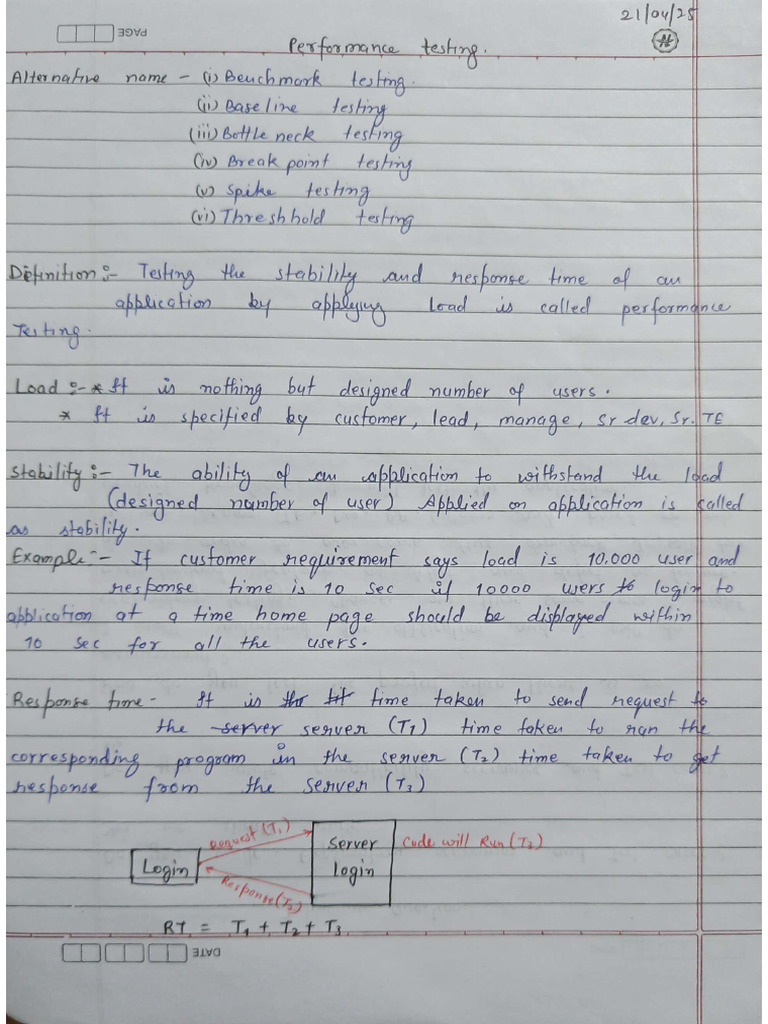 21/04/25
PAGE
Performance testing.
Alternative name - (i) Benchmark testing.
(ii) Baseline testing
(iii) Bottle neck testing
(iv) Break point testing
(v) Spike testing
(vi) Threshhold testing
Definition :- Testing the stability and response time of an
application by applying Load is called performance
Testing.
Load :- * It is nothing but designed number of users.
* It is specified by customer, lead, manage, Sr dev, Sr. TE
Stability :- The ability of an application to withstand the load
(designed number of user) Applied on application is called
as stability.
Example :- If customer requirement says load is 10,000 user and
response time is 10 sec if 10000 users to login to
application at a time home page should be displayed within
10 sec for all the users.
Response time - It is time taken to send request to
the server server (T1) time taken to run the
corresponding program in the server (T2) time taken to get
response from the server (T3)
Request (T1)
Server
Code will Run (T2)
Login
login
Response (T3)
RT = T1 + T2 + T3
DATE